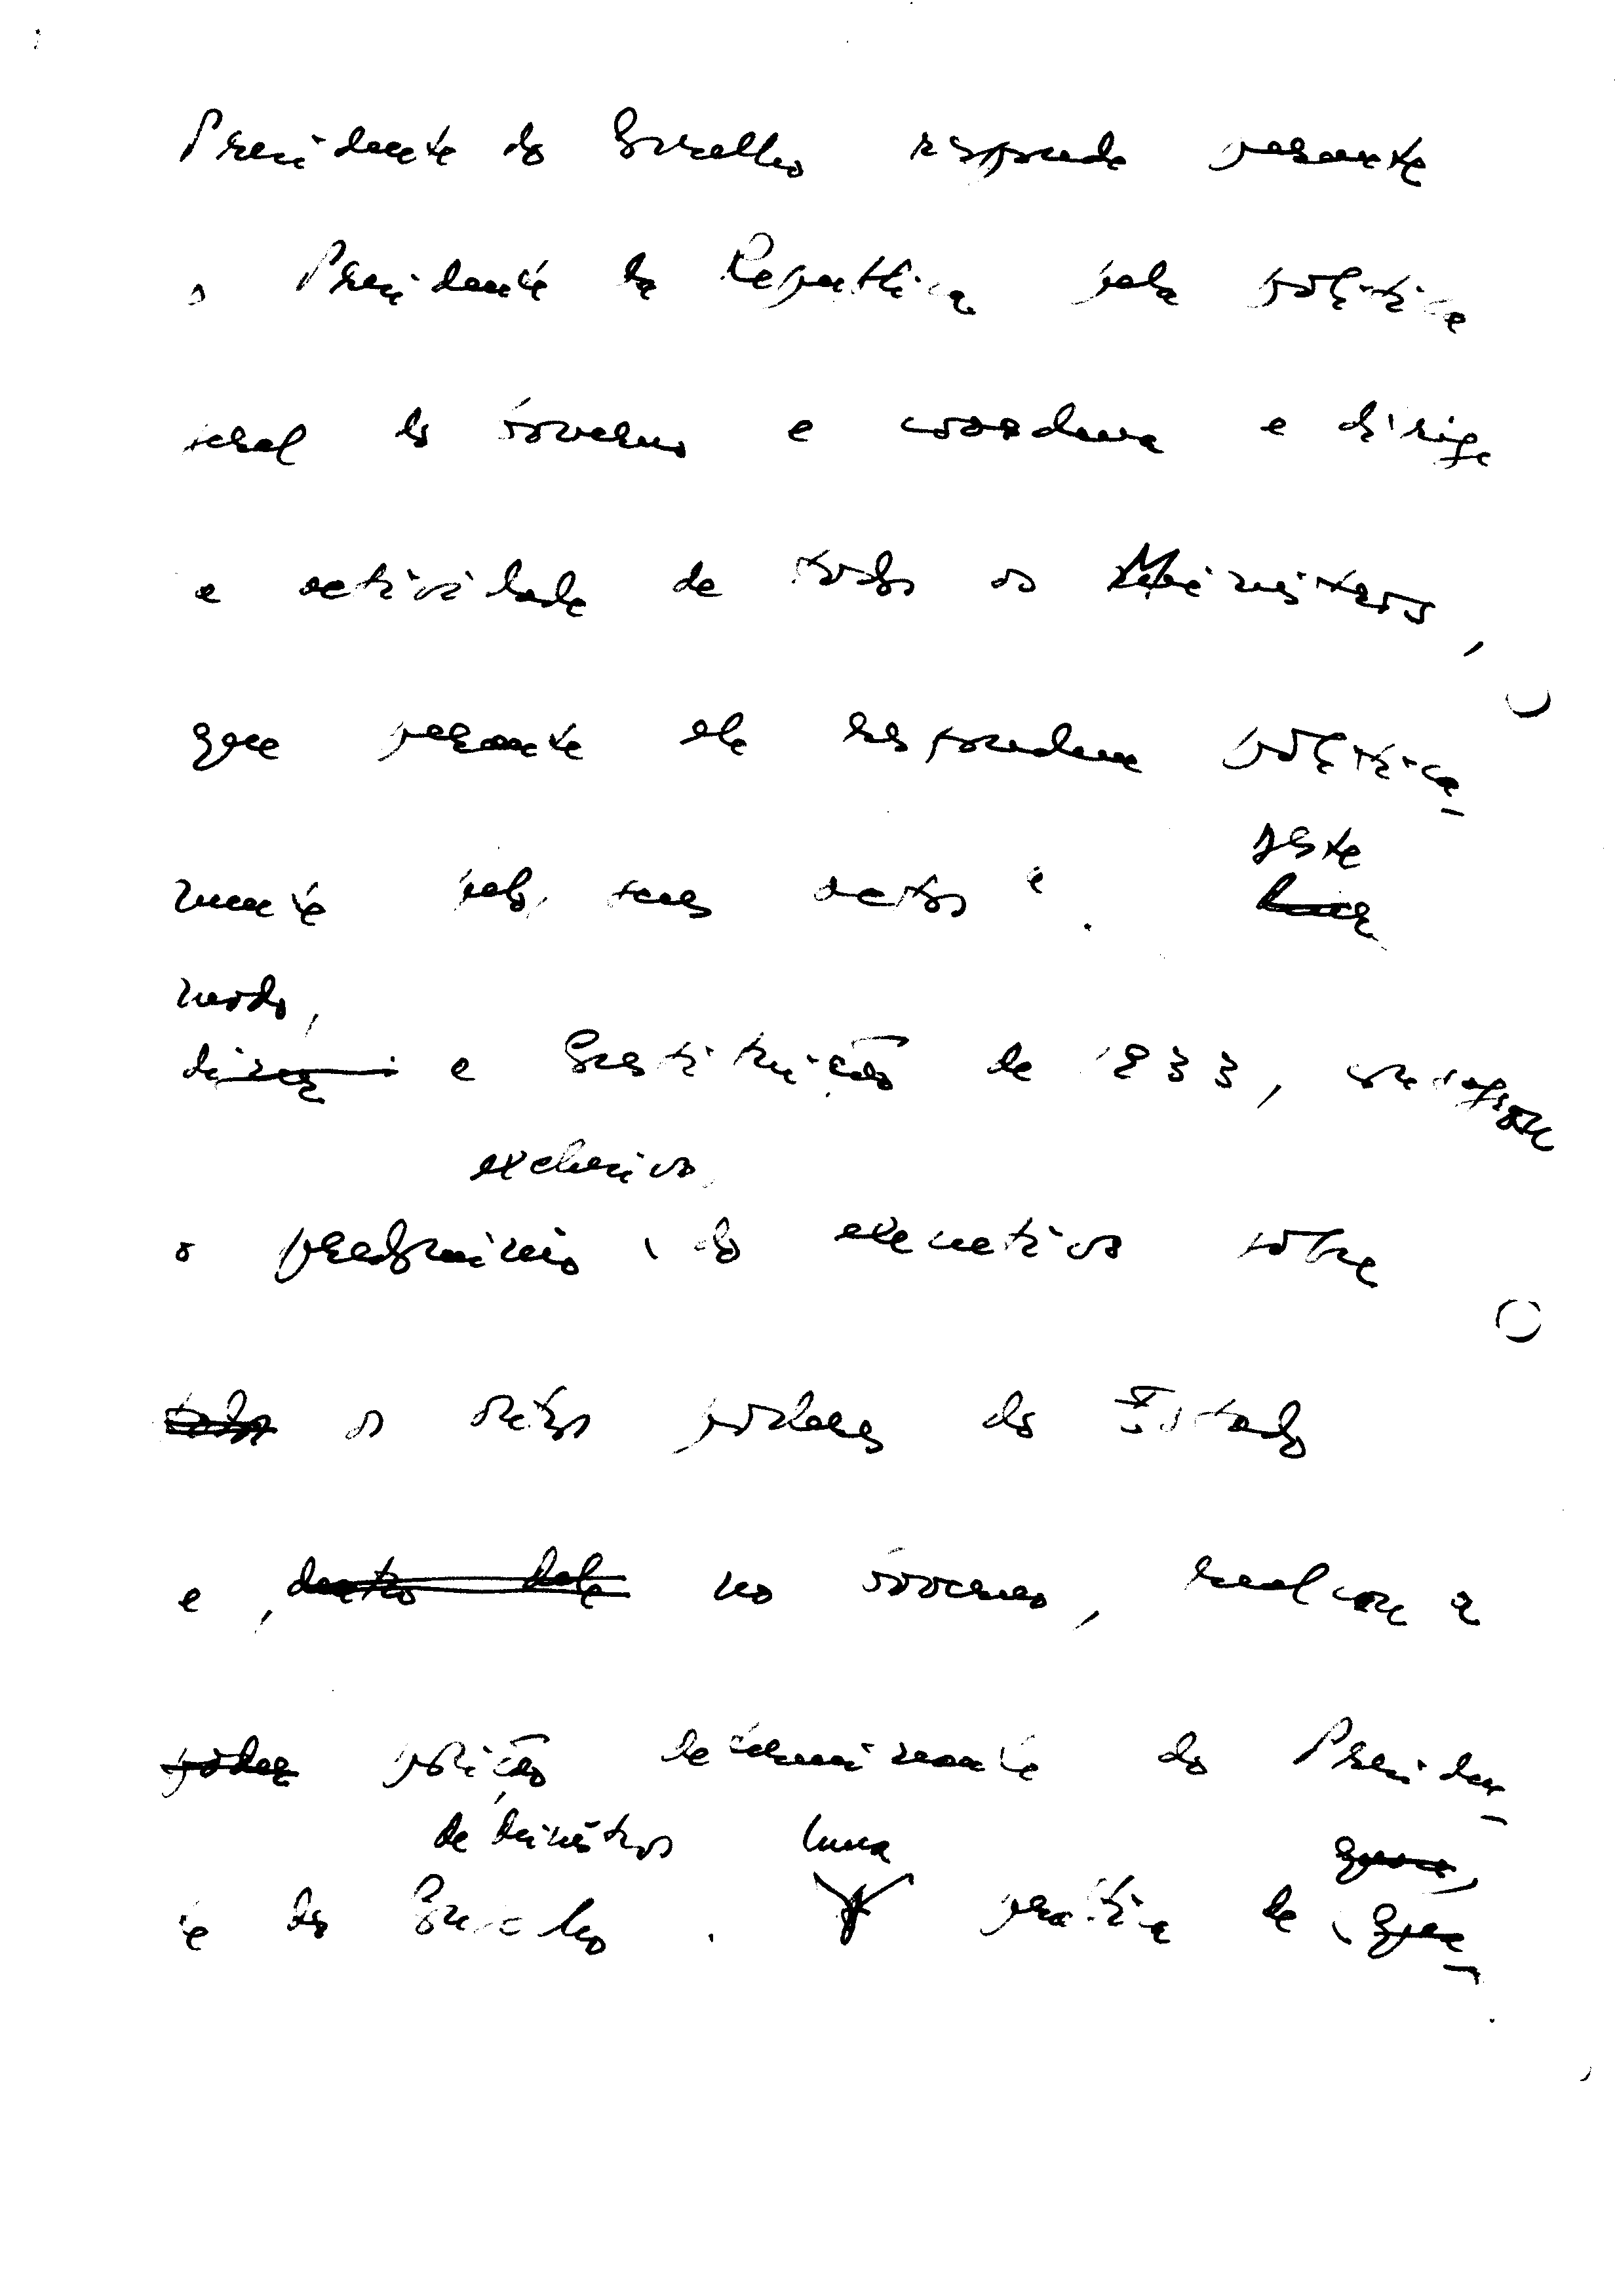 Presidente do Conselho responde perante
o Presidente da Republica pela politica
geral do Governo e coordena e dirige
a actividade de todos os Ministros,
que perante ele respondem politica-
mente pelos seus actos". Deste
modo,
a Constituição de 1933, consagrou
exclusivo,
o predominio do executivo sobre
todos os outros poderes do Estado
e, dentro dele no Governo, realcou a
poder posição determinante do Presiden-
de Ministros Numa
te do Conselho. prática de quase